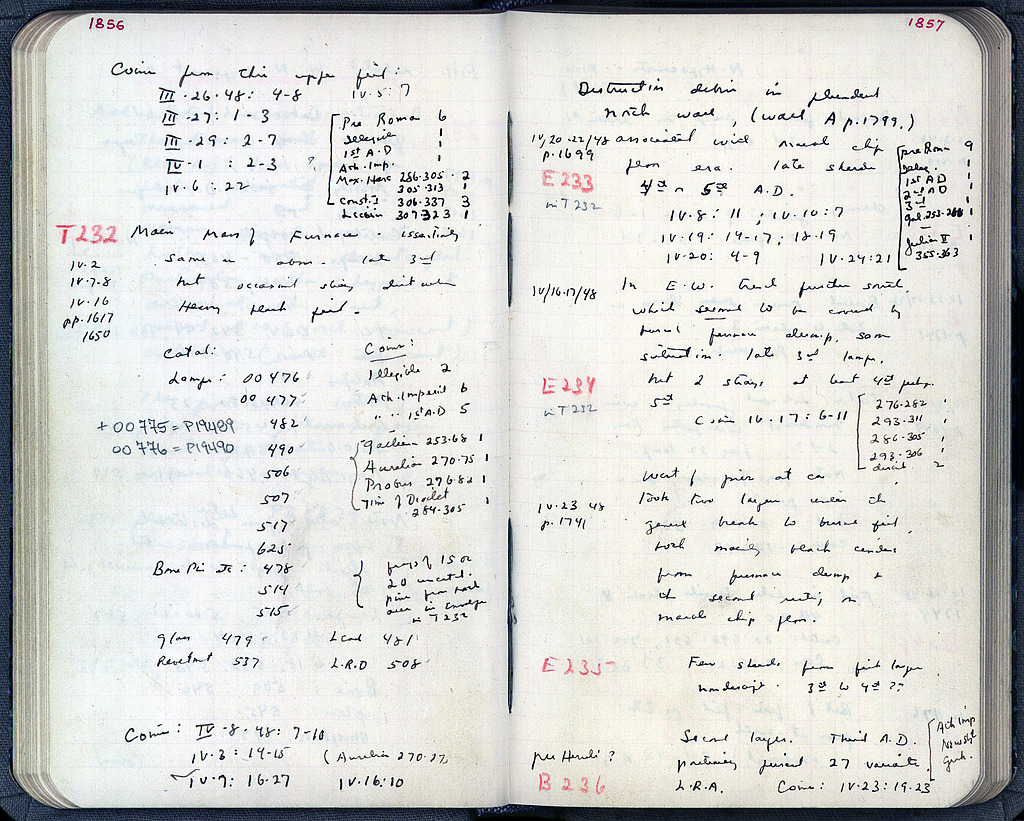 1856
Coins from this upper fill:
III·26·48: 4-8 IV·5:7
III·27: 1-3
III·29: 2-7
IV·1 : 2-3 ?
IV·6: 22
Pre Roman 6
illegible 1
1st A.D 1
Ath. Imp. 1
Max. Herc 286·305 · 2
305·313 1
Const. I 306·337 3
Licinius 307·323 1
T232 Main Mass of Furnace - essentially
same as above. late 3rd
but occasional
Heavy black fill -
IV·2
IV·7·8
IV·16
pp. 1617
1650
Catal:
Lamps: 00 476
00 477
+ 00 775 = P19489 482
00 776 = P19490 490
506
507
517
625
Bone Pin etc: 478
514
515
Coins:
Illegible 2
Ath. Imperial 6
" " 1st A.D 5
Gallien 253·68 1
Aurelian 270·75 1
Probus 276·82 1
Time of Dioclet 1
284·305
frags of 15 or
20 uncatal.
pins from
area in envelope
in T 232
glass 479 Lead 481
Revetment 537 L.R.D 508
Coins: IV·8·48: 7-10
IV·3: 14-15 (Aurelian 270·75
IV·9: 16·27 IV·16:10
1857
Destruction debris in
north wall, (wall A p. 1799.)
IV/20·22/48 associated with marble chip
p. 1699
floor era. late sherds
E233 4th or 5th A.D.
in T 232
IV·8: 11 ; IV·10: 7
IV·19: 14-17; 18·19
IV·20: 4-9 IV·24:21
pre Roman 9
illeg. 1
1st AD 1
2nd AD 1
3rd 1
Gal. 253·268 1
Julian II 1
355·363
IV/16·17/48 In E.W. trench further south,
which seemed to be covered by
burnt furnace dump, same
situation. late 3rd lamps,
E234 but 2 sherds at least 4th perhaps
in T232 5th
Coin IV·17: 6-11
276·282 1
293·311 1
286·305 1
293·306 1
2
IV·23 48 Took two layers under the
p. 1741
general break to burnt fill,
both mainly black cinders
from furnace dump &
the second resting on
marble chip floor.
E235 Few sherds from first layer
nondescript. 3rd to 4th ??
Second layer. Third A.D.
pre Heruli? particularly period 27 variety
B 236 L.R.A. Coins: IV·23: 19·23
Ath Imp